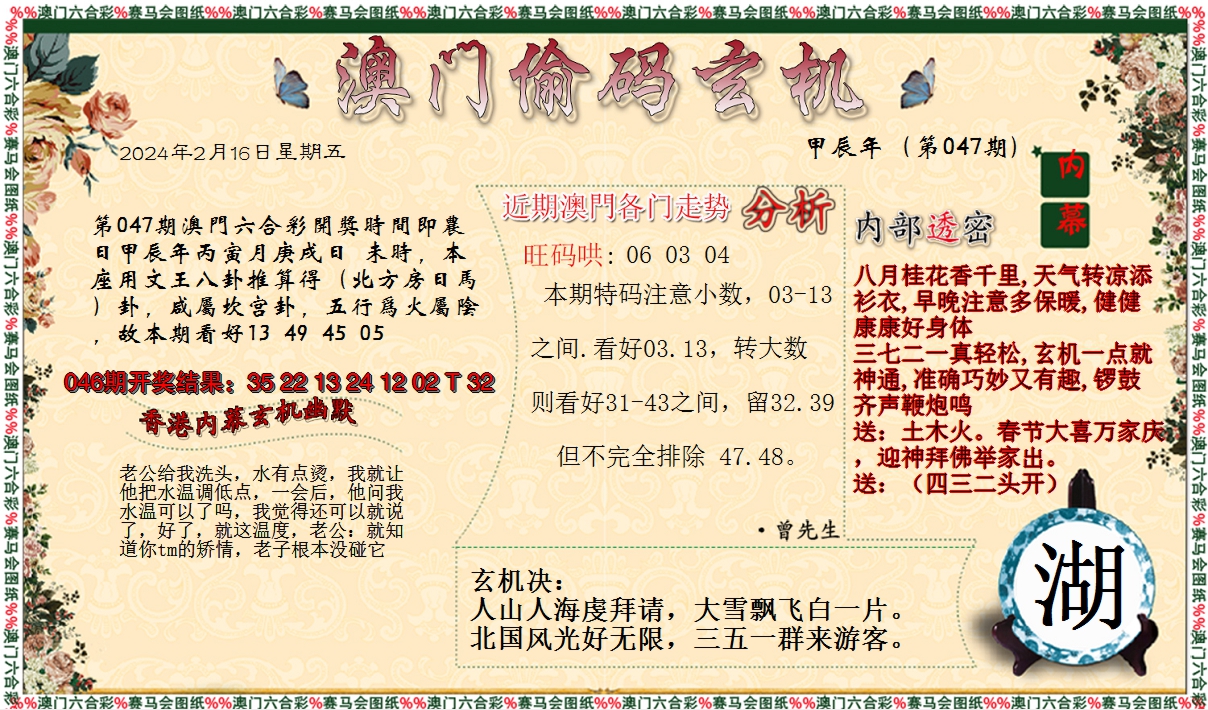 %%澳门六合彩%赛马会图纸%%澳门六合彩%赛马会图纸%%澳门六合彩%赛马会图纸%%澳门六合彩%赛马会图纸%%澳门六合彩%赛马会图纸%%澳门六合彩%赛马会图纸%%
澳门偷码玄机
2024年2月16日星期五
甲辰年（第047期）
内幕
第047期澳門六合彩開獎時間即農
日甲辰年丙寅月庚戌日 未時，本
座用文王八卦推算得（北方房日馬
）卦，咸屬坎宫卦，五行爲火屬陰
，故本期看好13 49 45 05
046期开奖结果：35 22 13 24 12 02 T 32
香港内幕玄机幽默
老公给我洗头，水有点烫，我就让
他把水温调低点，一会后，他问我
水温可以了吗，我觉得还可以就说
了，好了，就这温度，老公：就知
道你tm的矫情，老子根本没碰它
近期澳門各门走势 分析
旺码哄: 06 03 04
本期特码注意小数，03-13
之间.看好03.13，转大数
则看好31-43之间，留32.39
但不完全排除 47.48。
·曾先生
内部透密
八月桂花香千里,天气转凉添
衫衣,早晚注意多保暖,健健
康康好身体
三七二一真轻松,玄机一点就
神通,准确巧妙又有趣,锣鼓
齐声鞭炮鸣
送：土木火。春节大喜万家庆
，迎神拜佛举家出。
送：（四三二头开）
玄机决：
人山人海虔拜请，大雪飘飞白一片。
北国风光好无限，三五一群来游客。
湖
%%澳门六合彩%赛马会图纸%%澳门六合彩%赛马会图纸%%澳门六合彩%赛马会图纸%%澳门六合彩%赛马会图纸%%澳门六合彩%赛马会图纸%%澳门六合彩%赛马会图纸%%